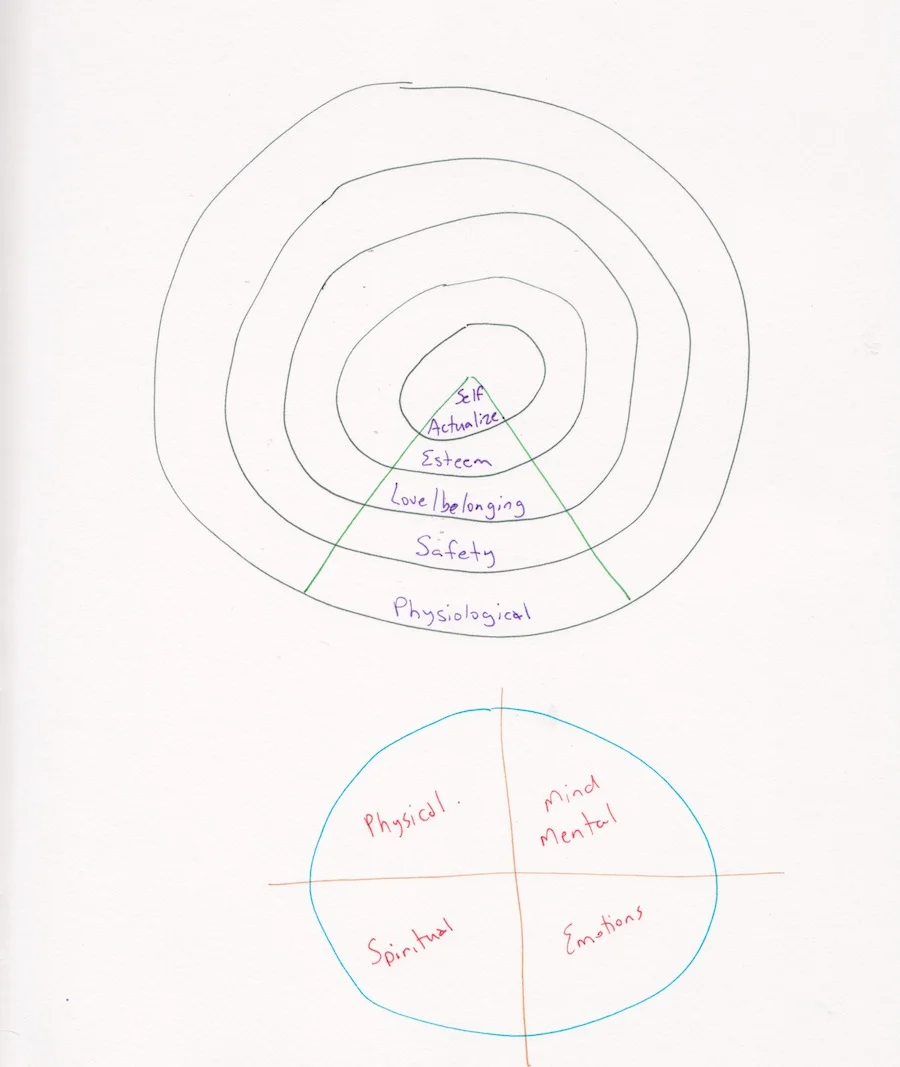 Self
Actualize
Esteem
Love/belonging
Safety
Physiological
Physical
Mind
Mental
Spiritual
Emotions